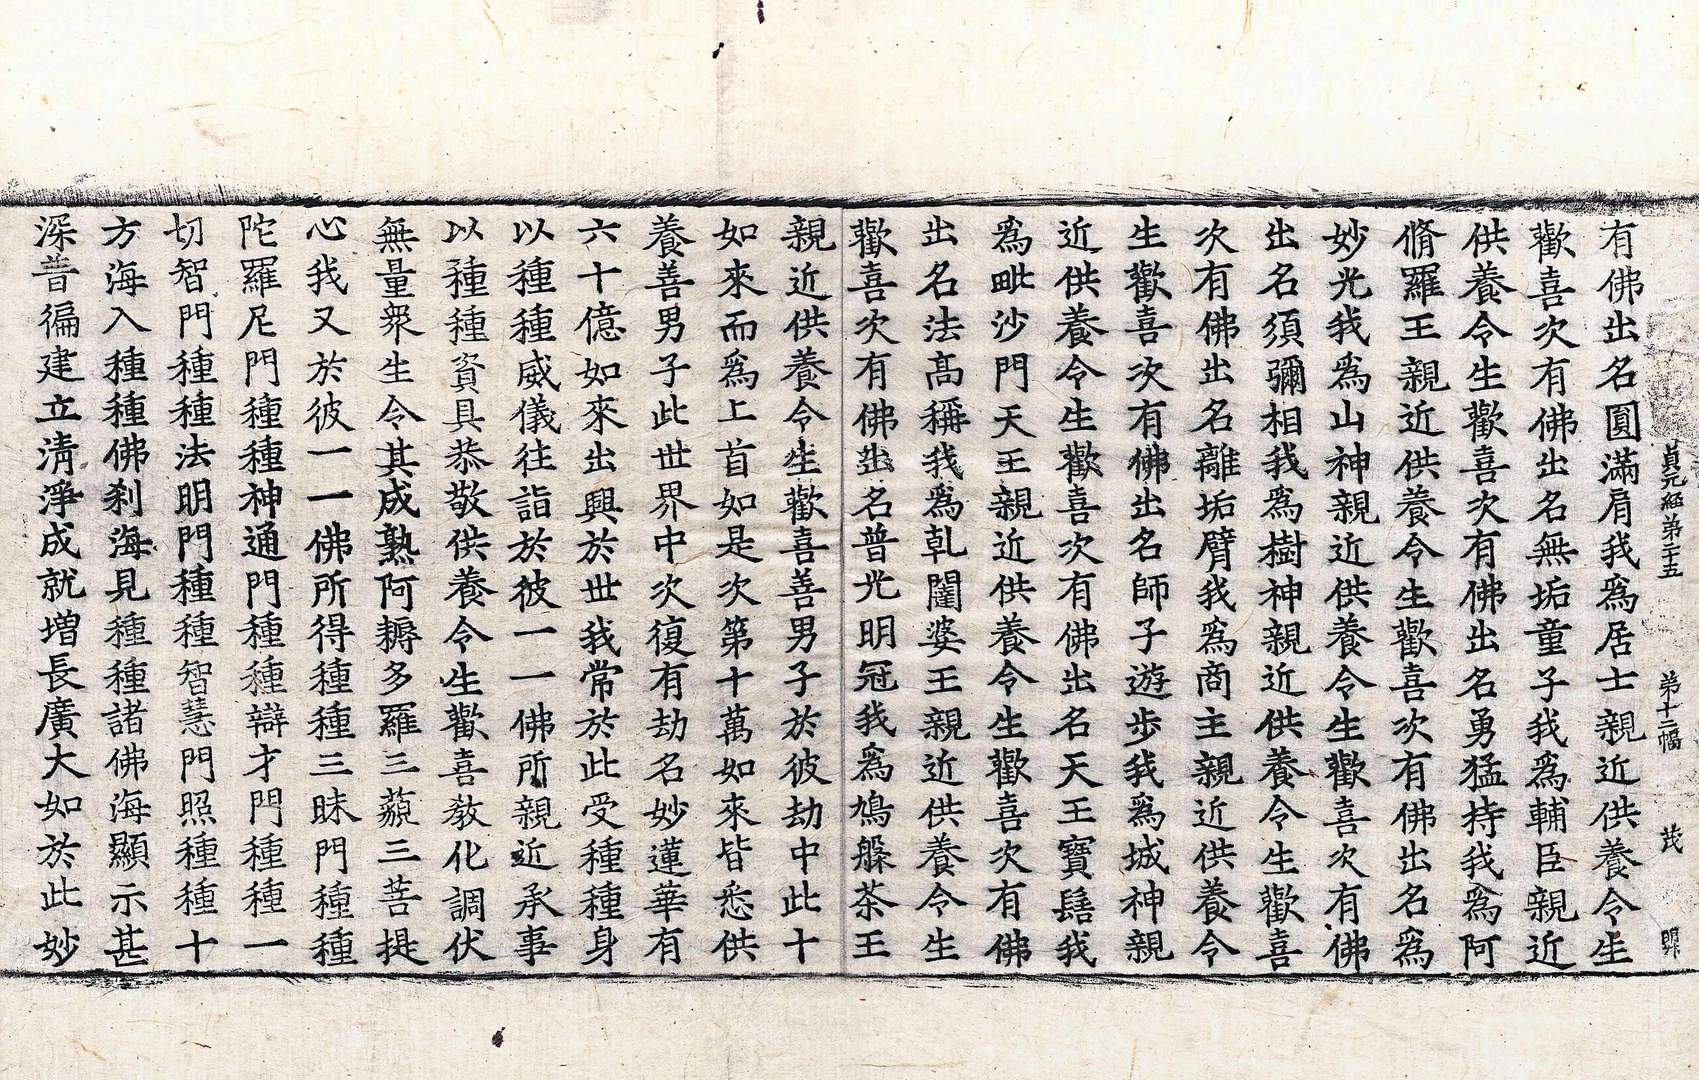 貞元經第二十五 第十二幅 茂 明升
有佛出名圓滿肩我爲居士親近供養令生
歡喜次有佛出名無垢童子我爲輔臣親近
供養令生歡喜次有佛出名勇猛持我爲阿
脩羅王親近供養令生歡喜次有佛出名爲
妙光我爲山神親近供養令生歡喜次有佛
出名須彌相我爲樹神親近供養令生歡喜
次有佛出名離垢臂我爲商主親近供養令
生歡喜次有佛出名師子遊步我爲城神親
近供養令生歡喜次有佛出名天王寶髻我
爲毗沙門天王親近供養令生歡喜次有佛
出名法高稱我爲乹闥婆王親近供養令生
歡喜次有佛出名普光明冠我爲鳩躲茶王
親近供養令生歡喜善男子於彼劫中此十
如來而爲上首如是次第十萬如來皆悉供
養善男子此世界中次復有劫名妙蓮華有
六十億如來出興於世我常於此受種種身
以種種威儀往詣於彼一一佛所親近承事
以種種資具恭敬供養令生歡喜教化調伏
無量衆生令其成熟阿耨多羅三藐三菩提
心我又於彼一一佛所得種種三昧門種種
陀羅尼門種種神通門種種辯才門種種一
切智門種種法明門種種智慧門照種種十
方海入種種佛刹海見種種諸佛海顯示甚
深普徧建立淸淨成就增長廣大如於此妙